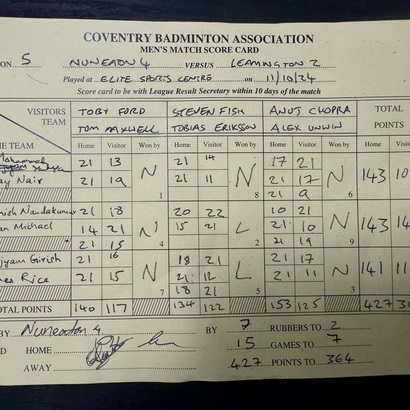 COVENTRY BADMINTON ASSOCIATION
MEN'S MATCH SCORE CARD
ON 5 NUNEATON 4 VERSUS LEAMINGTON 2
Played at ELITE SPORTS CENTRE on 11/10/24
Score card to be with League Result Secretary within 10 days of the match
VISITORS TEAM TOBY FORD STEVEN FISH ANUJ CHOPRA TOTAL
TOM MAXWELL TOBIAS ERIKSON ALEX UNWIN POINTS
E TEAM Home Visitor Won by Home Visitor Won by Home Visitor Won by Home Vi
Mohammed 21 13 N 1 21 14 N 8 17 21 N 6 143 10
ay Nair 21 19 21 11 21 17
21 9
ish Nandakumar 21 18 N 4 20 22 L 2 10 21 N 9 143 14
an Michael 14 21 15 21 21 10
21 15 21 19
yam Girish 21 16 N 7 18 21 L 5 21 17 N 3 141 11
es Rice 21 15 21 12 21 11
18 21
TOTAL POINTS 140 117 134 122 153 125 427 36
BY Nuneaton 4 BY 7 RUBBERS TO 2
D HOME 15 GAMES TO 7
AWAY 427 POINTS TO 364